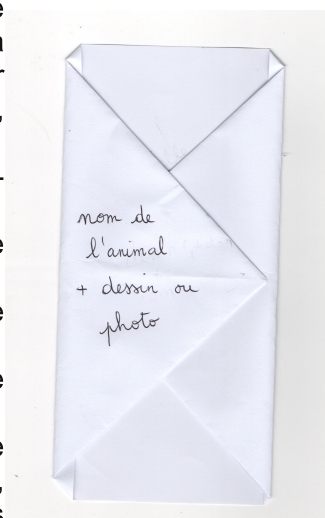 nom de
l'animal
+ dessin ou
photo